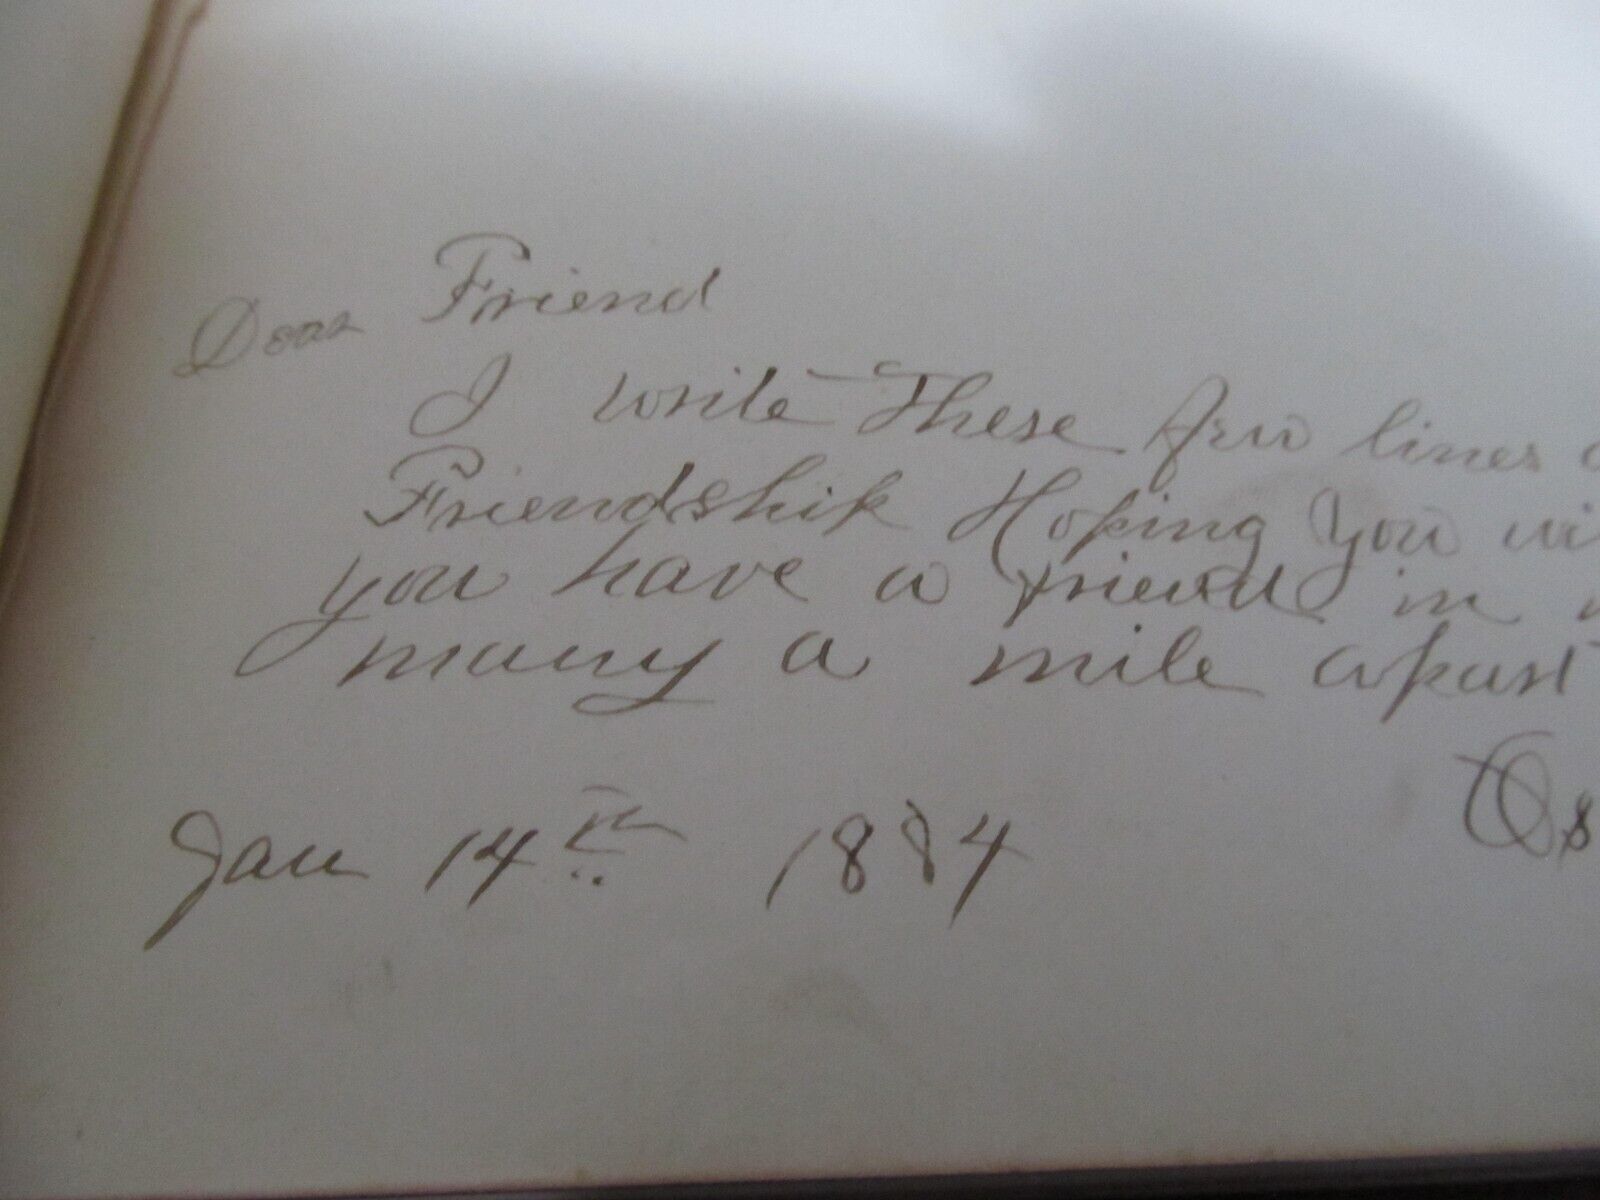 Dear Friend
I write These few lines
Friendship Hoping you
you have a friend in
many a mile apart
Jan 14th 1884